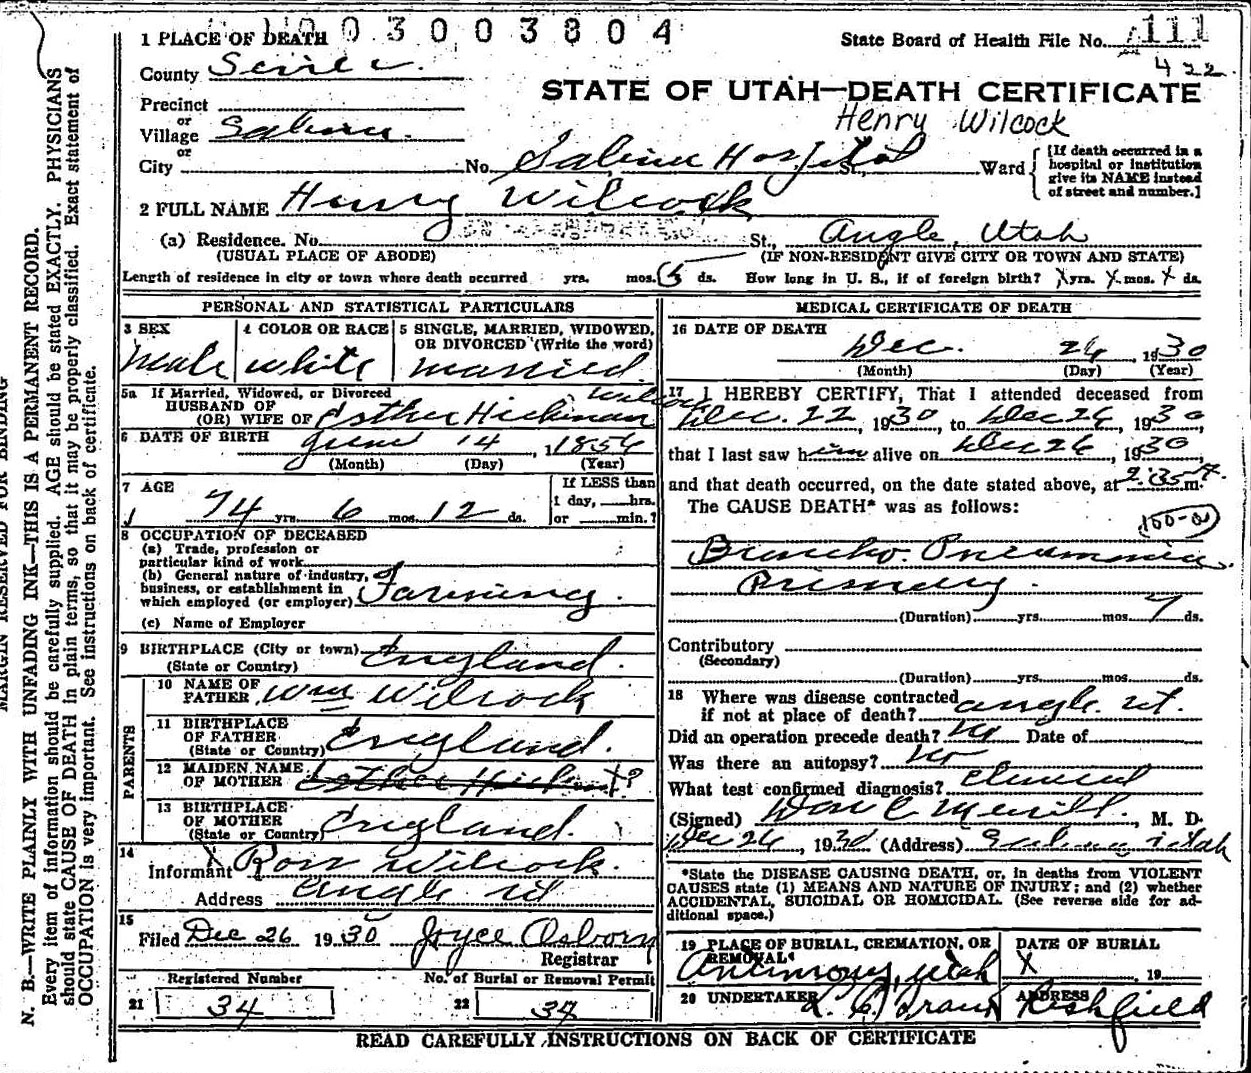 003003804
1 PLACE OF DEATH
State Board of Health File No. 111
422
County Sevier
STATE OF UTAH—DEATH CERTIFICATE
Henry Wilcock
Precinct
or
Village Salina
or
City No. Salina Hospital St., Ward
[If death occurred in a hospital or institution give its NAME instead of street and number.]
2 FULL NAME Henry Wilcock
(a) Residence. No. St., Angle, Utah
(USUAL PLACE OF ABODE) (IF NON-RESIDENT GIVE CITY OR TOWN AND STATE)
Length of residence in city or town where death occurred yrs. mos. 5 ds. How long in U. S., if of foreign birth? X yrs. X mos. X ds.
PERSONAL AND STATISTICAL PARTICULARS
3 SEX
Male
4 COLOR OR RACE
white
5 SINGLE, MARRIED, WIDOWED, OR DIVORCED (Write the word)
married
5a If Married, Widowed, or Divorced
HUSBAND OF
(OR) WIFE OF Esther Hickman
6 DATE OF BIRTH June 14, 1856
(Month) (Day) (Year)
7 AGE
74 yrs. 6 mos. 12 ds.
If LESS than
1 day, hrs.
or min.?
8 OCCUPATION OF DECEASED
(a) Trade, profession or
particular kind of work
(b) General nature of industry,
business, or establishment in
which employed (or employer) Farming.
(c) Name of Employer
9 BIRTHPLACE (City or town) England.
(State or Country)
PARENTS
10 NAME OF
FATHER Wm Wilcock
11 BIRTHPLACE
OF FATHER
(State or Country) England.
12 MAIDEN NAME
OF MOTHER Esther Hickman X?
13 BIRTHPLACE
OF MOTHER
(State or Country) England.
14
Informant X Ross Wilcock.
Address Angle Ut
15
Filed Dec 26 1930 Joyce Osborn
Registrar
Registered Number No. of Burial or Removal Permit
21 34 22 34
MEDICAL CERTIFICATE OF DEATH
16 DATE OF DEATH
Dec. 26, 1930
(Month) (Day) (Year)
17 I HEREBY CERTIFY, That I attended deceased from
Dec. 22, 1930, to Dec 26, 1930,
that I last saw him alive on Dec 26, 1930
and that death occurred, on the date stated above, at 2:35 P.m.
The CAUSE DEATH* was as follows:
100-a
Broncho. Pneumonia
Primary.
(Duration) yrs. mos. 7 ds.
Contributory
(Secondary)
(Duration) yrs. mos. ds.
18 Where was disease contracted
if not at place of death? Angle. Ut.
Did an operation precede death? no Date of
Was there an autopsy? no
What test confirmed diagnosis? clinical
(Signed) Don C Merrill, M. D.
Dec 26, 1930 (Address) Salina Utah
*State the DISEASE CAUSING DEATH, or, in deaths from VIOLENT
CAUSES state (1) MEANS AND NATURE OF INJURY; and (2) whether
ACCIDENTAL, SUICIDAL OR HOMICIDAL. (See reverse side for ad-
ditional space.)
19 PLACE OF BURIAL, CREMATION, OR
REMOVAL
Antimony, Utah
DATE OF BURIAL
X, 19
20 UNDERTAKER
ADDRESS
Richfield
READ CAREFULLY INSTRUCTIONS ON BACK OF CERTIFICATE
MARGIN RESERVED FOR BINDING
N. B.—WRITE PLAINLY WITH UNFADING INK—THIS IS A PERMANENT RECORD.
Every item of information should be carefully supplied. AGE should be stated EXACTLY. PHYSICIANS
should state CAUSE OF DEATH in plain terms, so that it may be properly classified. Exact statement of
OCCUPATION is very important. See instructions on back of certificate.